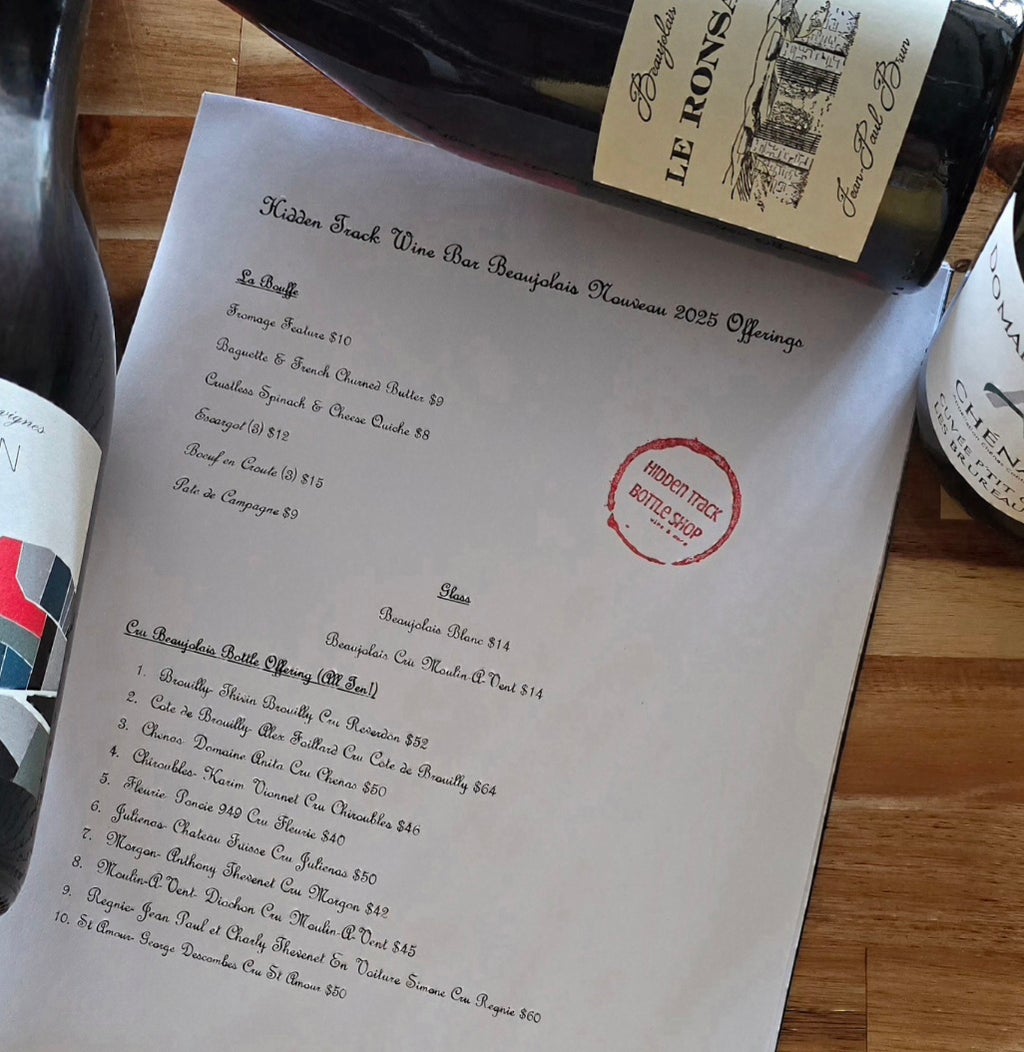 Beaujolais
LE RONSA
Jean-Paul Brun
Hidden Track Wine Bar Beaujolais Nouveau 2025 Offerings
La Bouffe
Fromage Feature $10
Baguette & French Churned Butter $9
Crustless Spinach & Cheese Quiche $8
Escargot (3) $12
Boeuf en Croute (3) $15
Pate de Campagne $9
HIDDEN TRACK
BOTTLE SHOP
wine & more
Glass
Beaujolais Blanc $14
Beaujolais Cru Moulin-A-Vent $14
Cru Beaujolais Bottle Offering (All Ten!)
1. Brouilly- Thivin Brouilly Cru Reverdon $52
2. Cote de Brouilly- Alex Foillard Cru Cote de Brouilly $64
3. Chenas- Domaine Anita Cru Chenas $50
4. Chiroubles- Karim Vionnet Cru Chiroubles $46
5. Fleurie Poncie 949 Cru Fleurie $40
6. Julienas- Chateau Fuisse Cru Julienas $50
7. Morgon- Anthony Thevenet Cru Morgon $42
8. Moulin-A-Vent- Diochon Cru Moulin-A-Vent $45
9. Regnie- Jean Paul et Charly Thevenet En Voiture Simone Cru Regnie $60
10. St Amour- George Descombes Cru St Amour $50
vignes
N
DOMA
CHÉNA
CUVÉE P'TIT
LES BRUREAU